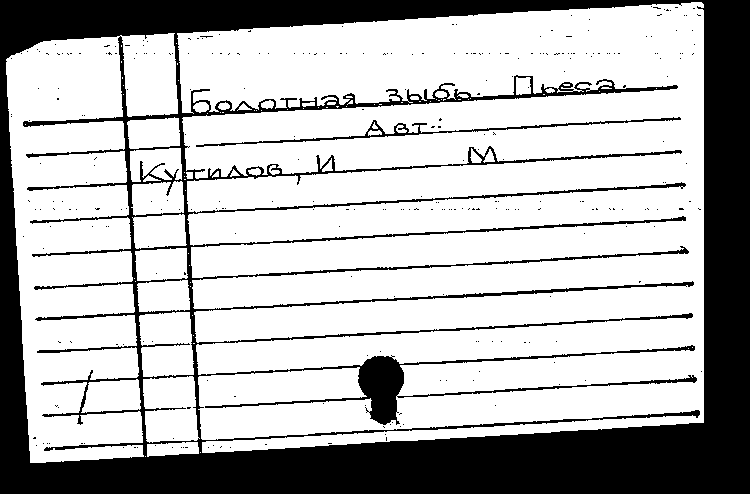 Болотная зыбь. Пьеса.
Авт.:
Кутилов, И М